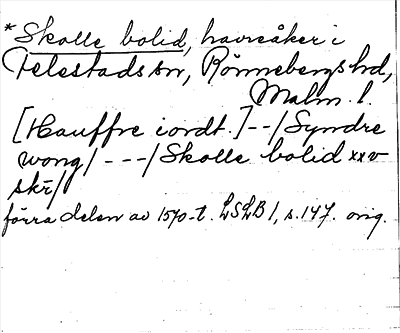 *Skolle bolid, havreåker i
Felestads sn, Rönnebergs hd,
Malm. l.
[Hauffre iordt.]--/Syndre
wong/ ---/Skolle bolid xx v
skr/
förra delen av 1570-t. LSLB 1, s. 147. orig.